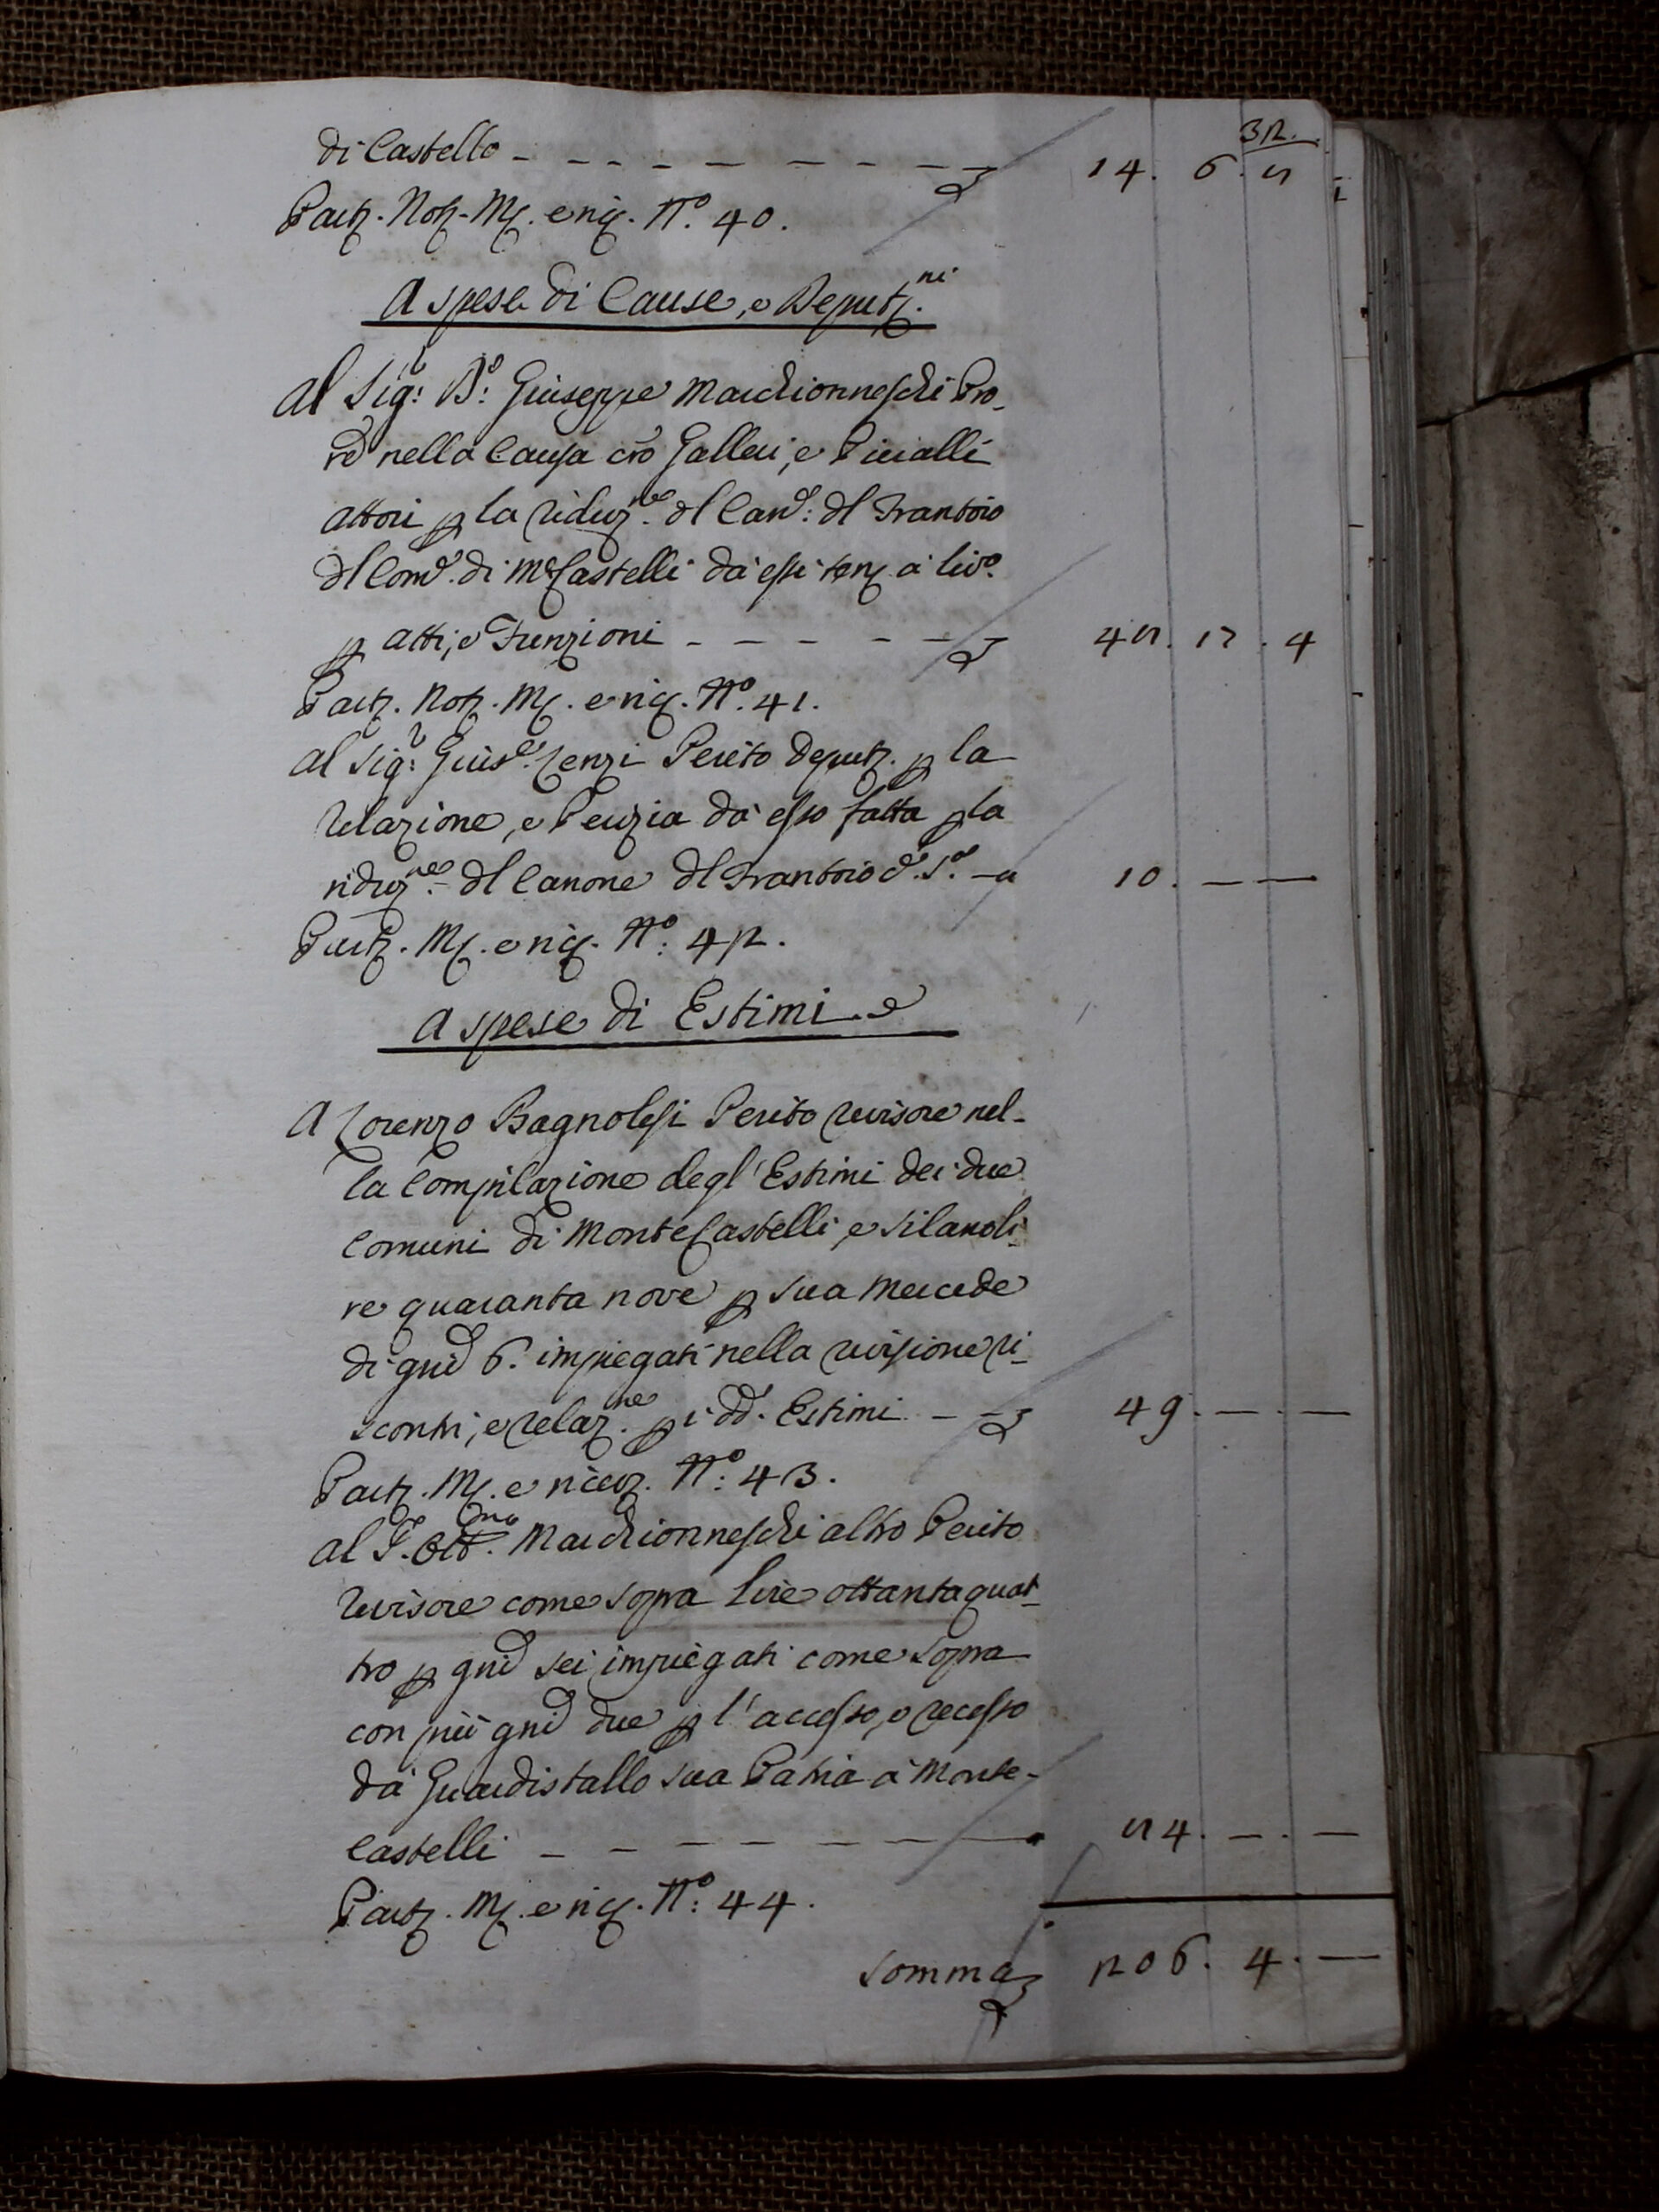 32.
di Castello - - - - - - - - - 14. 6. 8
Partz. Notz. Mz. e ricz. N.º 40.
A Spese di Cause, e Deputz.ni
Al Sig:r D:º Giuseppe Marchionneschi Pro_
re nella Causa cro Gallevi, e Picialli
attori p la riduz.ne dl Can.e: dl Frantoio
dl Com.e di M.e Castelli da essi tenz a liv.º
p atti, e Funzioni - - - - - - 48. 17. 4
Partz. Notz. Mz. e ricz. N.º 41.
Al Sig:r Gius.e Lenzi Perito Deputz. p la
relazione, e Perizia da esso fatta p la
riduz.ne dl Canone dl Frantoio d.º S.a - 10. — —
Partz. Mz. e ricz. N.º: 42.
A Spese di Estimi
A Lorenzo Bagnolesi Perito revisore nel_
la Compilazione degl'Estimi dei due
Comuni di MonteCastelli, e Silano li_
re quaranta nove p sua Mercede
di gni 6. impiegati nella revisione ri_
scontri, e relaz.ne p i dd. Estimi - - 49. — . —
Partz. Mz. e ricevz. N.º: 43.
Al S. Ott.no Marchionneschi altro Perito
revisore come sopra Lire ottantaquat_
tro p gni sei impiegati come sopra
con più gni due p l'accesso, e recesso
da Guardistallo sua Patria a Monte-
Castelli - - - - - - - 84. — . —
Partz. Mz. e ricz. N.º: 44.
Somma 206. 4. —